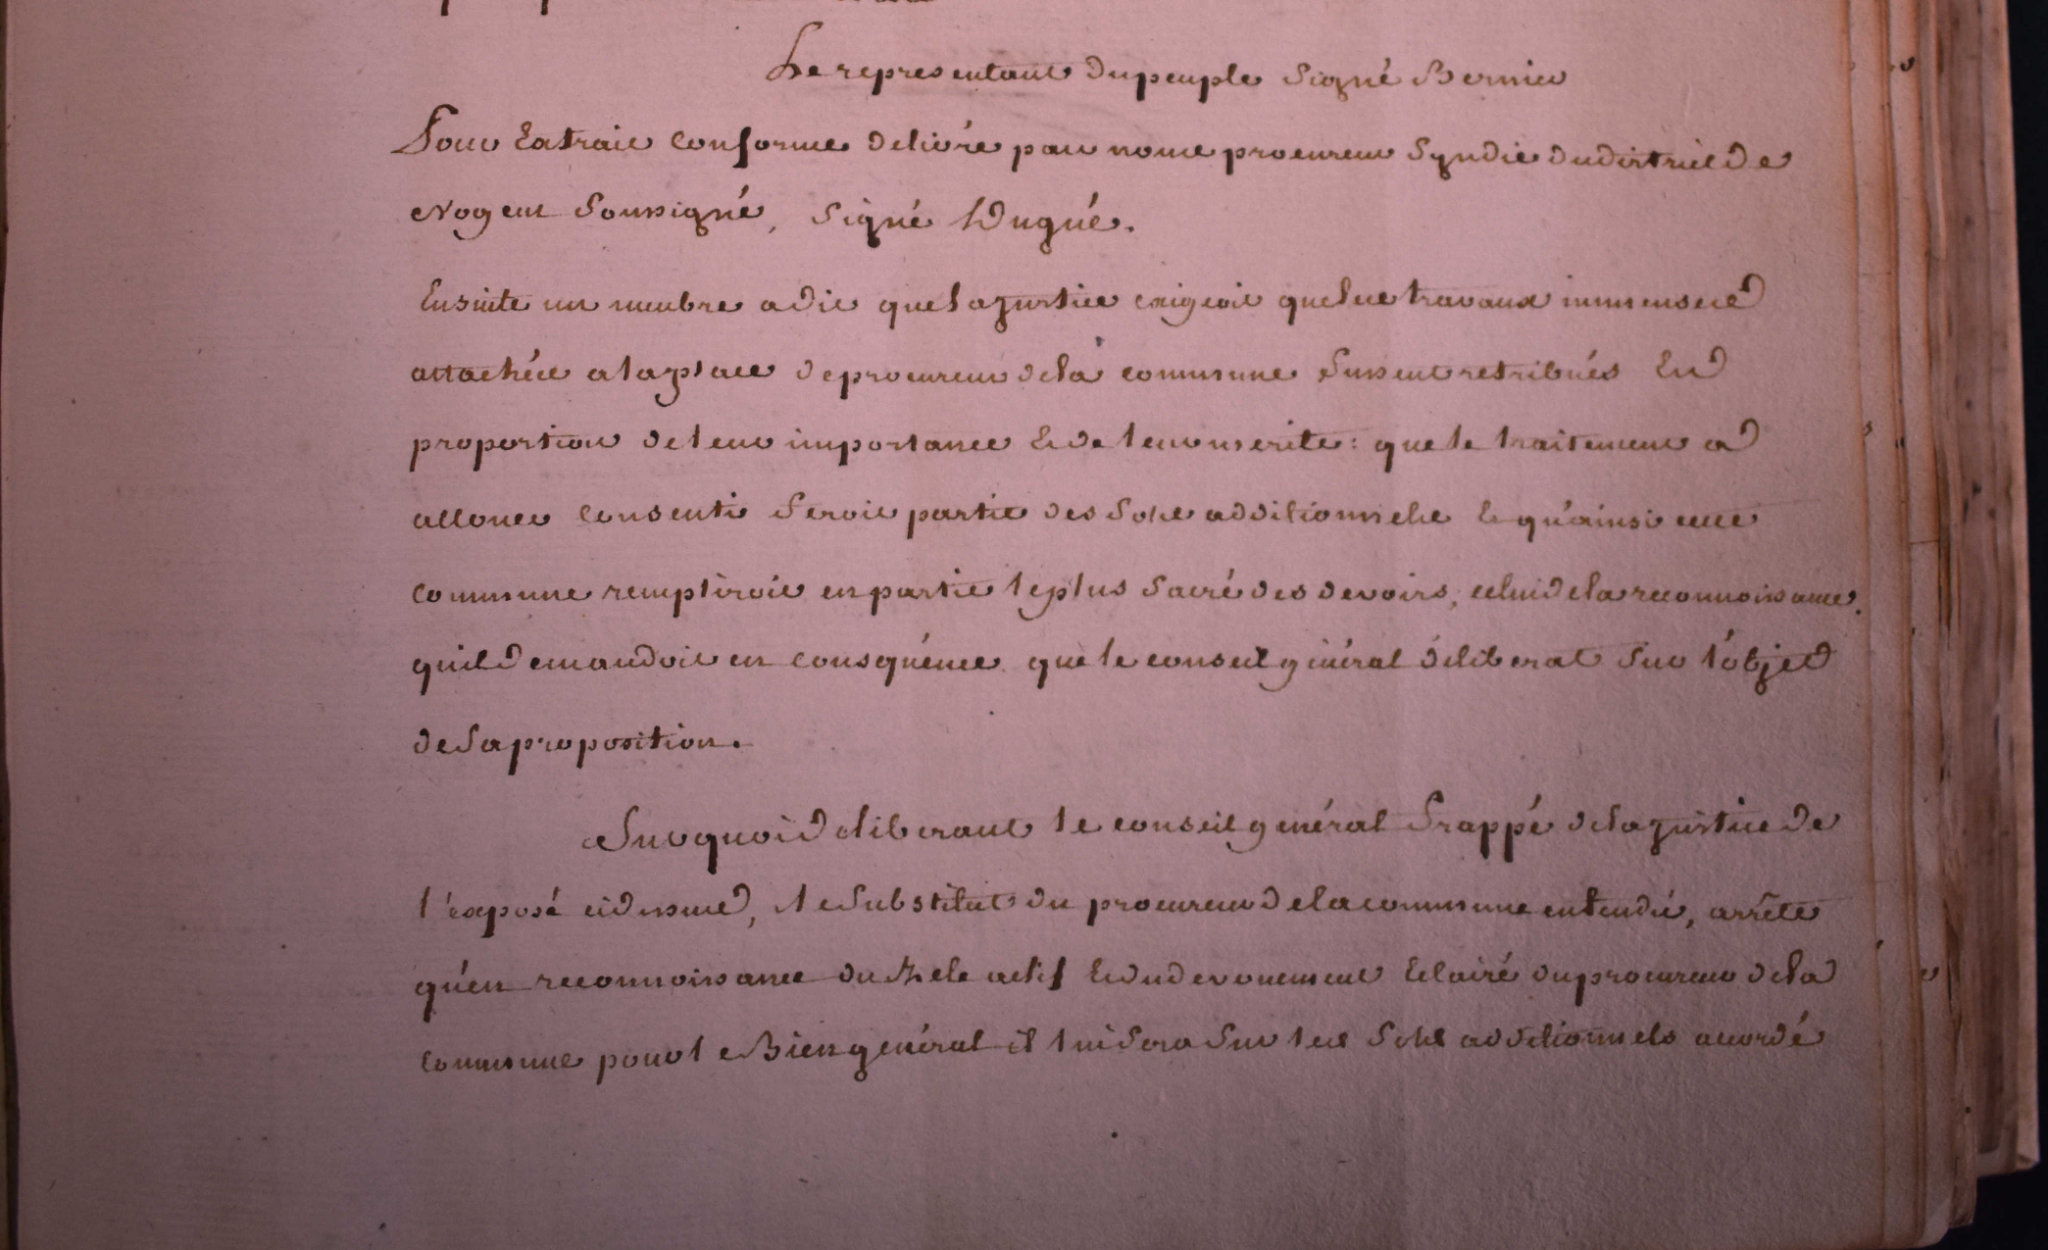 Le representant du peuple signé Bernier
Pour Extrait conforme delivré par nome procureur Syndic du district de
Nogent Soussigné, signé Dugué.
Ensuite un membre a dit que la justice exigeoit que les travaux immenses
attachés a la place de procureur de la commune fussent retribués En
proportion de leur importance & de leur merite : que le traitement a
allouer consenti feroit partie des Sols additionnels & qu'ainsi cette
commune rempliroit en partie le plus sacré des devoirs, celui de la reconnoissance.
qu'il demandoit en consquénce que le conseil général déliberat sur l'objet
de sa proposition.
Sur quoi déliberant le conseil général frappé de la justice de
l'exposé ci dessus, le substitut du procureur de la commune entendu, arrête
qu'en reconnoissance du Zele actif & du devouement Eclairé du procureur de la
commune pour le Bien général il lui sera sur les Sols additionnels accordé